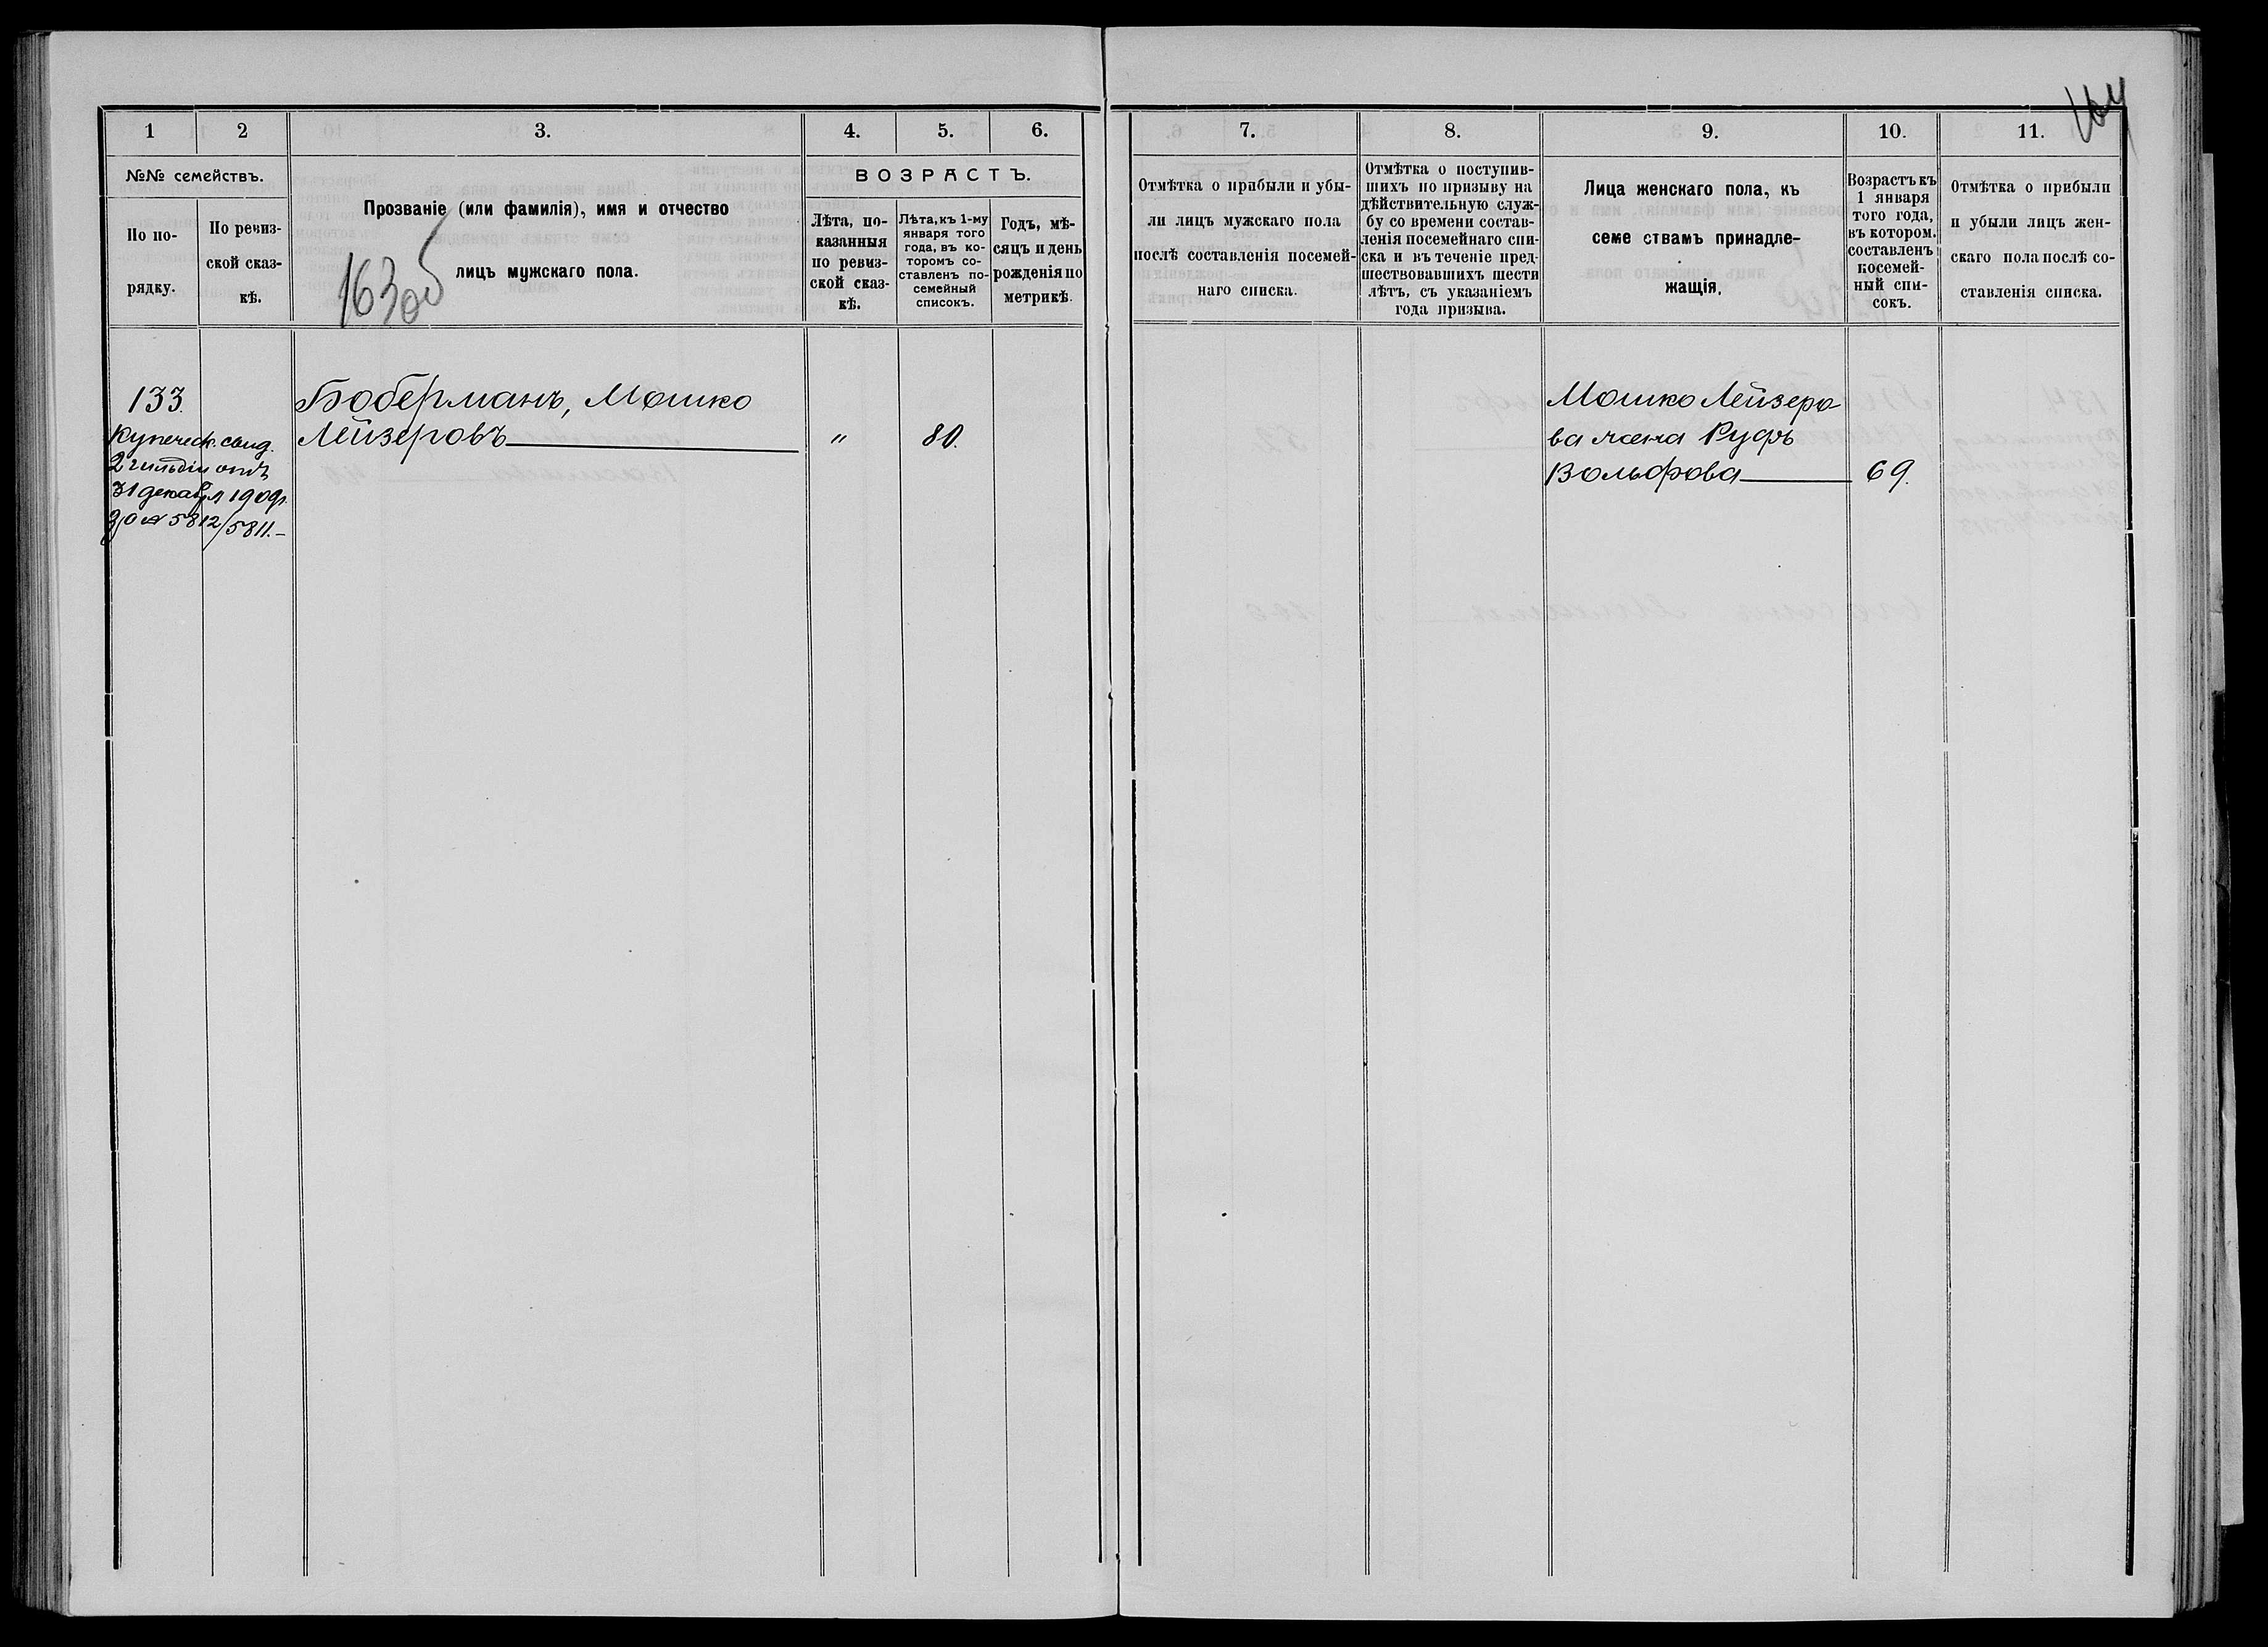 164
1
2
3.
4.
5.
6.
№№ семействъ.
По по-
рядку.
По ревиз-
ской сказ-
кѣ.
Прозваніе (или фамилія), имя и отчество
лицъ мужскаго пола.
163 об
ВОЗРАСТЪ.
Лѣта, по-
казанныя
по ревиз-
ской сказ-
кѣ.
Лѣта, къ 1-му
января того
года, въ ко-
торомъ со-
ставленъ по-
семейный
списокъ.
Годъ, мѣ-
сяцъ и день
рожденія по
метрикѣ.
133.
Купеческ. свид.
2 гильдіи отъ
31 декабря 1909г.
за № 5812/5811.-
Боберманъ, Мошко
Лейзеровъ
"
80.
7.
8.
9.
10.
11.
Отмѣтка о прибыли и убы-
ли лицъ мужскаго пола
послѣ составленія посемей-
наго списка.
Отмѣтка о поступив-
шихъ по призыву на
дѣйствительную служ-
бу со времени состав-
ленія посемейнаго спи-
ска и въ теченіе пред-
шествовавшихъ шести
лѣтъ, съ указаніемъ
года призыва.
Лица женскаго пола, къ
семе ствамъ принадле-
жащія.
Возрастъ къ
1 января
того года,
въ котором.
составленъ
посемей-
ный спи-
сокъ.
Отмѣтка о прибыли
и убыли лицъ жен-
скаго пола послѣ со-
ставленія списка.
Мошко Лейзеро-
ва жена Руфь
Вольфова
69.